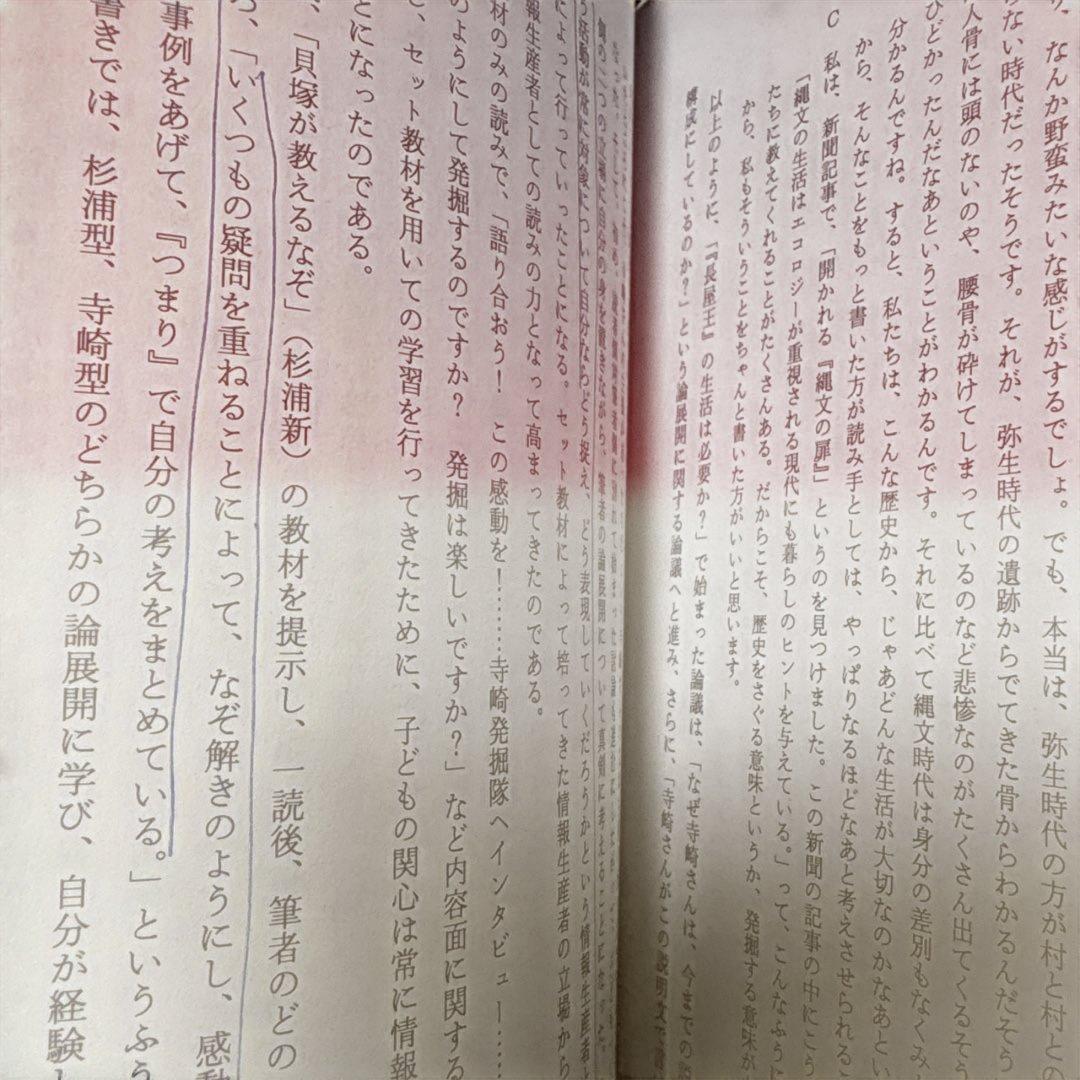 なんか野蛮みたいな感じがするでしょ。でも、本当は、弥生時代の方が村と村との
ない時代だったそうです。それが、弥生時代の遺跡からでてきた骨からわかるんだそう
人骨には頭のないのや、腰骨が砕けてしまっているのなど悲惨なのがたくさん出てくるそう
ひどかったんだなあということがわかるんです。それに比べて縄文時代は身分の差別もなくみ
分かるんですね。すると、私たちは、こんな歴史から、じゃあどんな生活が大切なのかなあとい
から、そんなことをもっと書いた方が読み手としては、やっぱりなるほどなあと考えさせられるこ
C 私は、新聞記事で、「開かれる『縄文の扉』」というのを見つけました。この新聞の記事の中にこう
「縄文の生活はエコロジーが重視される現代にも暮らしのヒントを与えている。」って、こんなふうに
たちに教えてくれることがたくさんある。だからこそ、歴史をさぐる意味というか、発掘する意味が
から、私もそういうことをちゃんと書いた方がいいと思います。
以上のように、『長屋王』の生活は必要か?」で始まった論議は、「なぜ寺崎さんは、今までの説
構成にしているのか?」という論展開に関する論議へと進み、さらに、「寺崎さんがこの説明文で
に自分の身を置きながら、筆者の論展開について真剣に考えることに
活動が常に対象について自分ならどう捉え、どう表現していくだろうかという情報生産者
によって行っていったことになる。セット教材によって培ってきた情報生産者の立場から
報生産者としての読みの力となって高まってきたのである。
材のみの読みで、「語り合おう! この感動を!……寺崎発掘隊へインタビュー……
のようにして発掘するのですか? 発掘は楽しいですか?」など内容面に関する
、セット教材を用いての学習を行ってきたために、子どもの関心は常に情報
とになったのである。
、「貝塚が教えるなぞ」(杉浦新)の教材を提示し、一読後、筆者のどの
、「いくつもの疑問を重ねることによって、なぞ解きのようにし、感動
事例をあげて、『つまり』で自分の考えをまとめている。」というふう
書きでは、杉浦型、寺崎型のどちらかの論展開に学び、自分が経験し